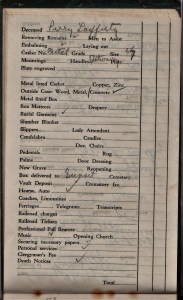 Deceased Percy Lafferty
Removing Remains Men to Assist
Embalming Laying out
Casket No. Metal Grade Size 6/3
Mountings Handles Plate
Plate engraved
Metal lined Casket Copper, Zinc
Outside Case Wood, Metal, Cement
Metal lined Box
Box Mattress Drapery
Burial Garment
Slumber Blanket
Slippers Lady Attendant
Candelabra Candles
Doz. Chairs
Pedestals Rug
Palms Door Dressing
New Grave Reopening
Box delivered to Cemetery
Vault Deposit Cemetery fee
Hearse, Auto
Coaches, Limousines
Ferriages Telegrams Transcripts
Railroad charges
Railroad Tickets
Professional Pall Bearers
Music Opening Church
Securing necessary papers
Personal services
Clergyman's Fee
Death Notices
Total